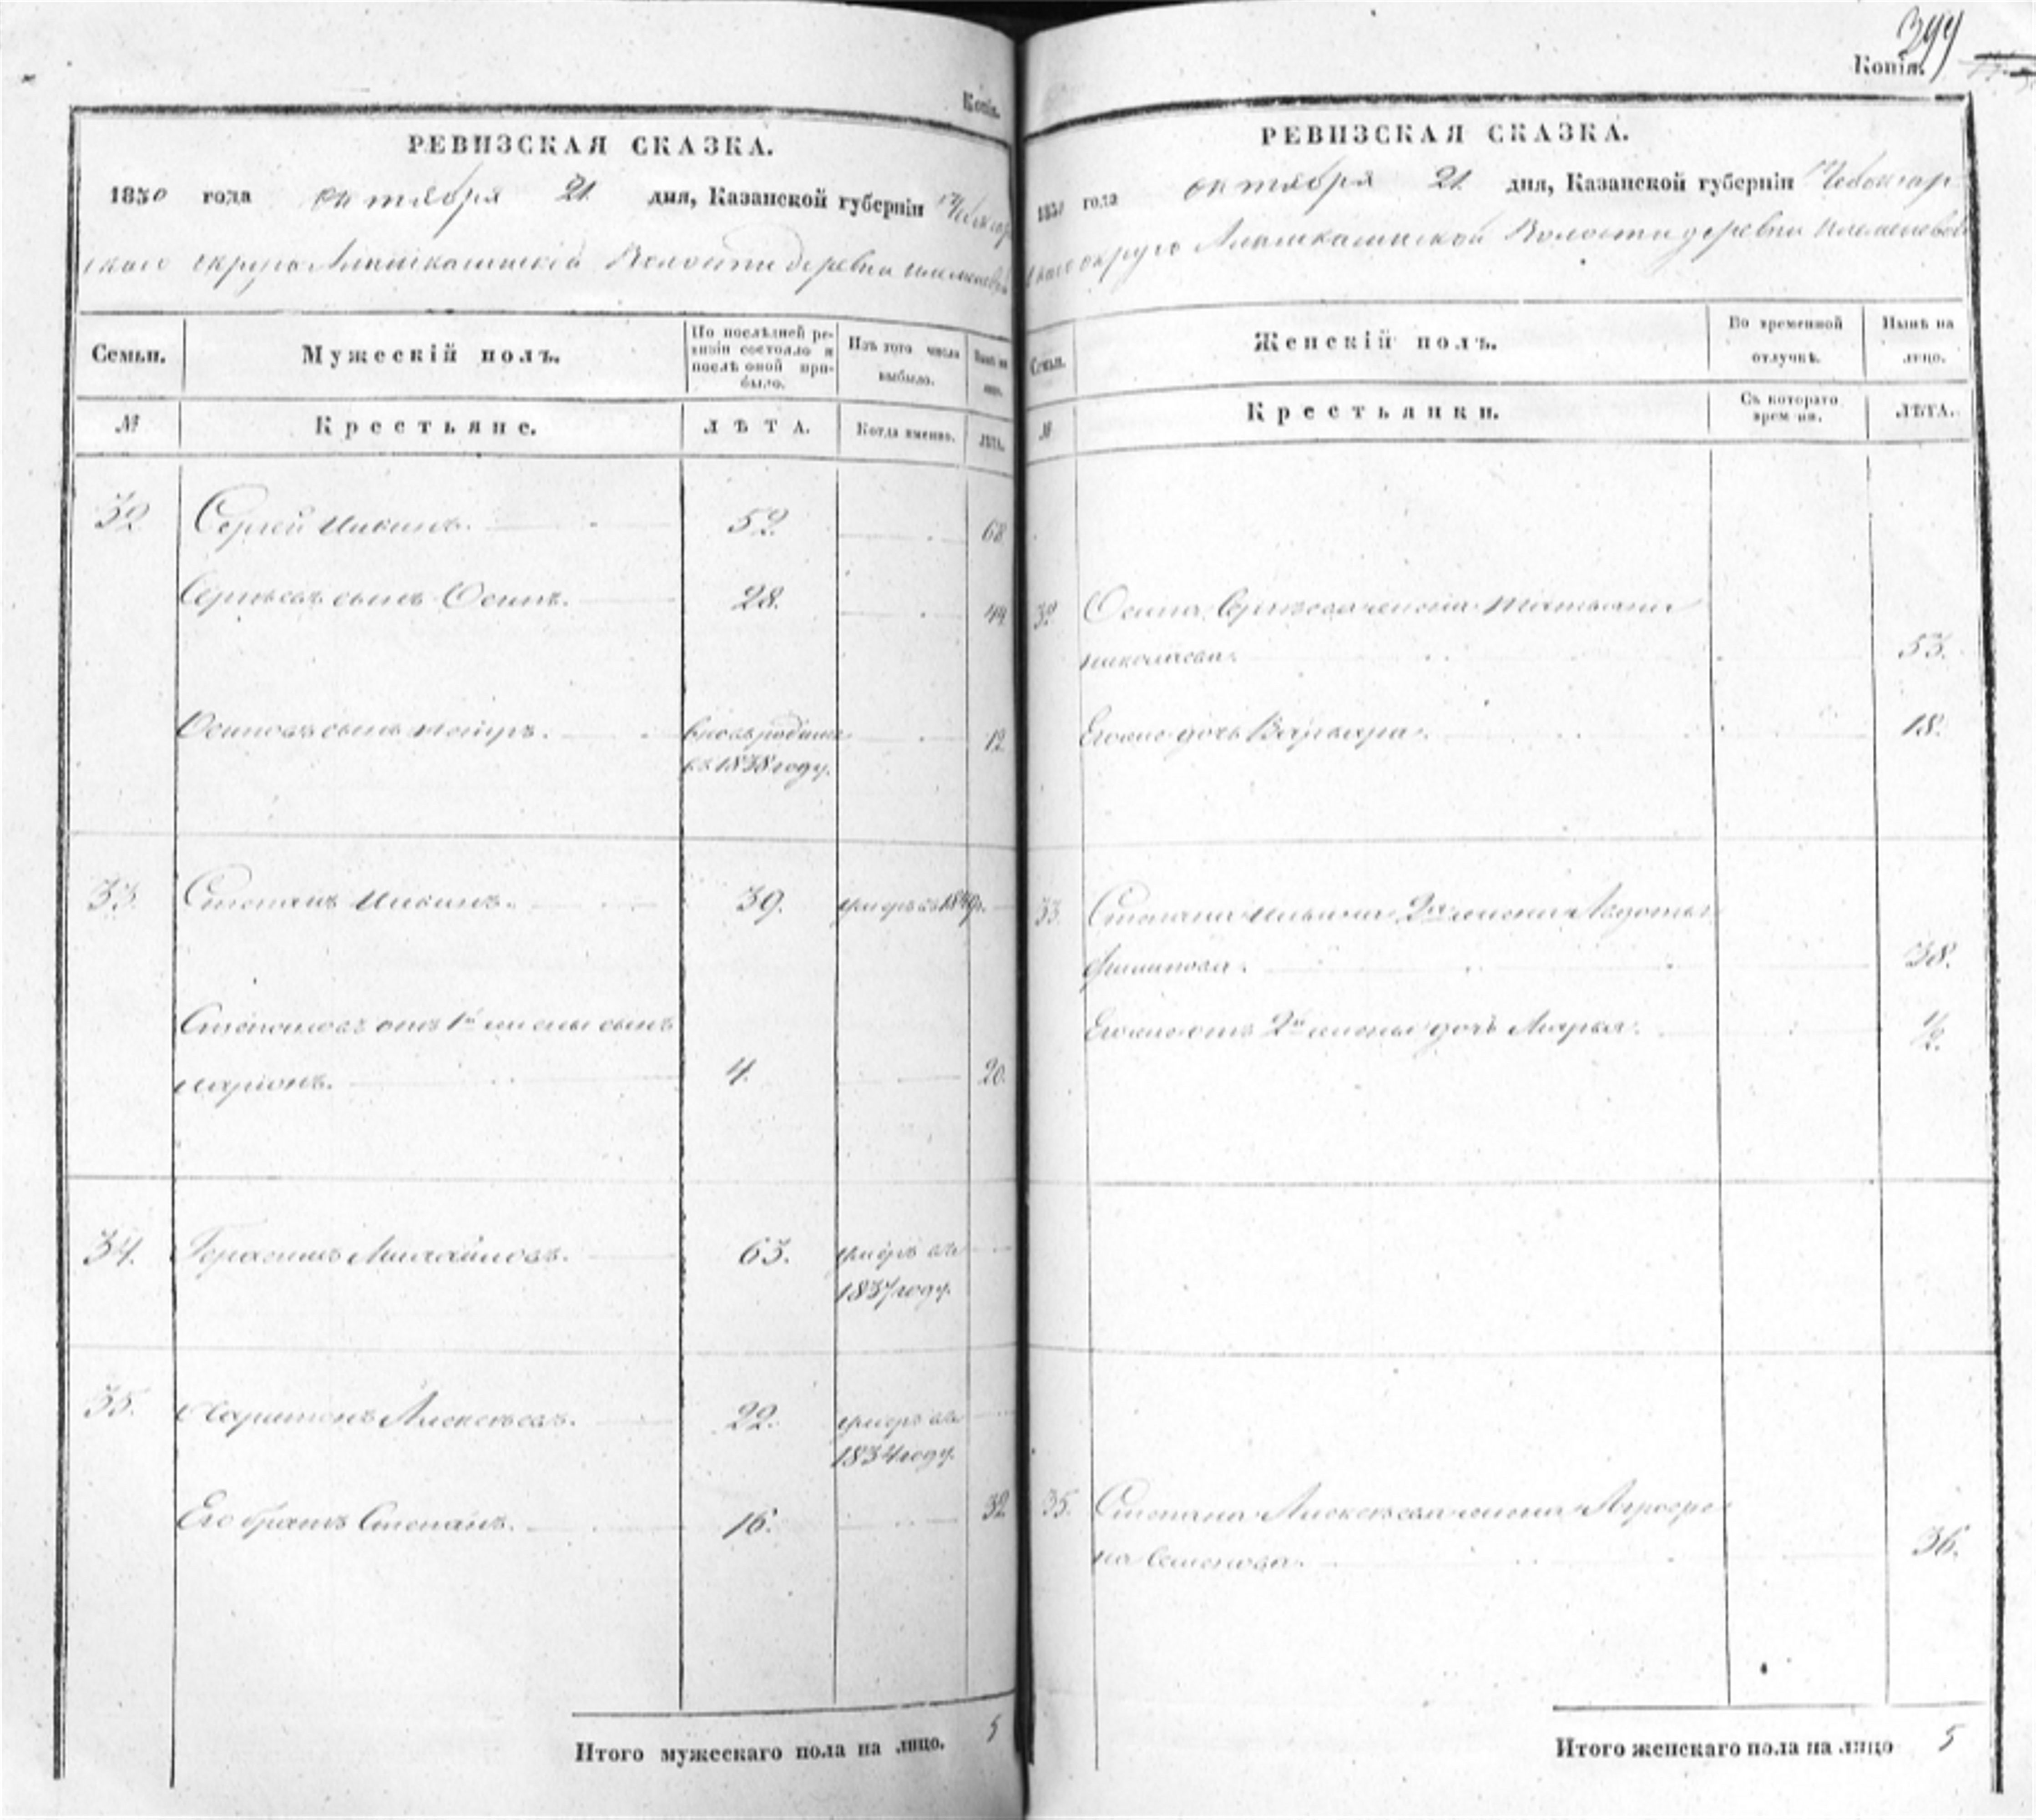 Копія.
РЕВИЗСКАЯ СКАЗКА.
1850 года октября 21 дня, Казанской губерніи Чебоксар
скаго округа Алымкасинской Волости деревни
Семьи. Мужескій полъ. По послѣдней ре-визіи состояло и послѣ оной при-было. Изъ того числа выбыло. Нынѣ на лицо.
№ Крестьяне. ЛѢТА. Когда именно. ЛѢТА.
32 Сергей 52. 68
Сергѣевъ сынъ Осипъ. 28. 44
Осиповъ сынъ Петръ. вновь рожденъ 12
въ 1838 году.
33. Степанъ 39. умеръ въ 1849г.
Степановъ отъ 1й жены сынъ
Ларіонъ. 4. 20.
34. Герасимъ Михайловъ. 63. умеръ въ
1837 году.
35. Харитонъ Алексѣевъ. 22. умеръ въ
1834 году.
Его братъ Степанъ. 16. 32
Итого мужескаго пола на лицо. 5
399
Копія.
РЕВИЗСКАЯ СКАЗКА.
1850 года октября 21 дня, Казанской губерніи Чебоксар
скаго округа Алымкасинской Волости деревни
Семьи. Женскій полъ. Во временной отлучкѣ. Нынѣ на лицо.
№ Крестьянки. Съ котораго времени. ЛѢТА.
32 Осипа Сергѣева жена Татьяна
Николаева. 53.
Его же дочь Варвара. 18.
33. Степана Ильина 2я жена Авдотья
Филипова. 38.
Его же отъ 2й жены дочь Марья. 1/2.
35. Степана Алексѣева жена Агрофе
на Семенова. 36.
Итого женскаго пола на лицо 5